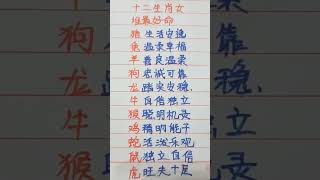 十二生肖女
谁最好命
猪生活安稳
兔温柔幸福
羊善良温柔
狗忠诚可靠
龙踏实安稳、
牛自信独立
猴聪明机灵
鸡精明能干
蛇活泼乐观
鼠独立自信
虎旺夫十足